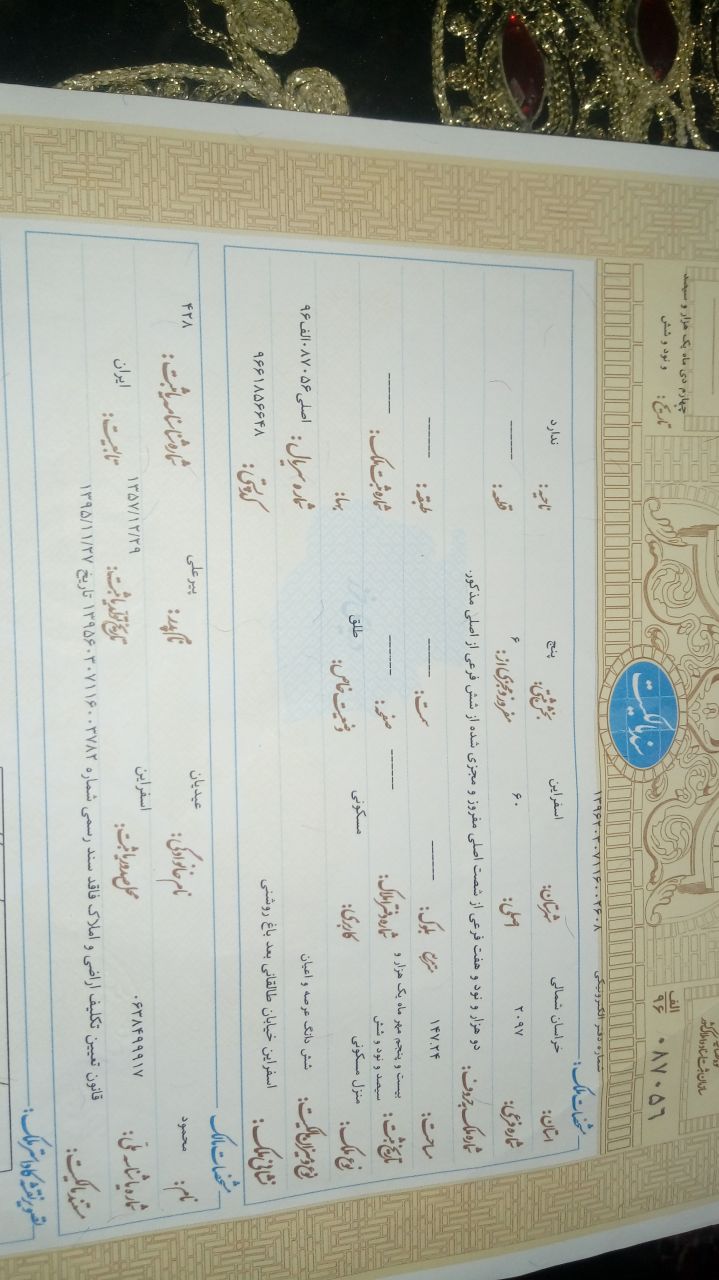 سازمان ثبت اسناد و املاک کشور
الف
۹۶
۰۸۷۰۵۶
سند مالکیت
تاریخ:
چهارم دی ماه یک هزار و سیصد
و نود و شش
شماره دفتر الکترونیکی
۱۳۹۶۲۰۳۰۷۱۱۶۰۰۲۶۰۸
مشخصات ملک:
استان: خراسان شمالی شهرستان: اسفراین بخش ثبتی: پنج ناحیه: ندارد
شماره فرعی: ۲۰۹۷ اصلی: ۶۰ مفروز و مجزی از: ۶ قطعه: -----
شماره ملک بحروف: دو هزار و نود و هفت فرعی از شصت اصلی مفروز و مجزی شده از شش فرعی از اصلی مذکور.
مساحت: ۱۴۷.۲۴ مترمربع بلوک: ----- سمت: ----- طبقه: -----
تاریخ ثبت: بیست و پنجم مهر ماه یک هزار و سیصد و نود و شش شماره دفتر املاک: ----- صفحه: ----- شماره ثبت ملک: -----
نوع ملک: منزل مسکونی کاربری: مسکونی وضعیت خاص: طلق بهاء:
نوع و میزان مالکیت: شش دانگ عرصه و اعیان شماره سریال: اصلی ۰۸۷۰۵۶الف۹۶
نشانی ملک: اسفراین خیابان طالقانی بعد باغ روشنی کد پستی: ۹۶۶۱۸۵۶۶۴۸
مشخصات مالک
نام: محمود نام خانوادگی: عیدیان نام پدر: پیرعلی شماره شناسنامه/ثبت: ۴۲۸
شماره/شناسه ملی: ۰۶۳۸۴۹۹۹۱۷ محل صدور/ثبت: اسفراین تاریخ تولد/ثبت: ۱۳۵۷/۱۲/۲۹ تابعیت: ایران
مستند مالکیت: قانون تعیین تکلیف اراضی و املاک فاقد سند رسمی شماره ۱۳۹۵۶۰۳۰۷۱۱۶۰۰۳۷۸۲ تاریخ ۱۳۹۵/۱۱/۲۷
تصویر نقشه کاداستر ملک: